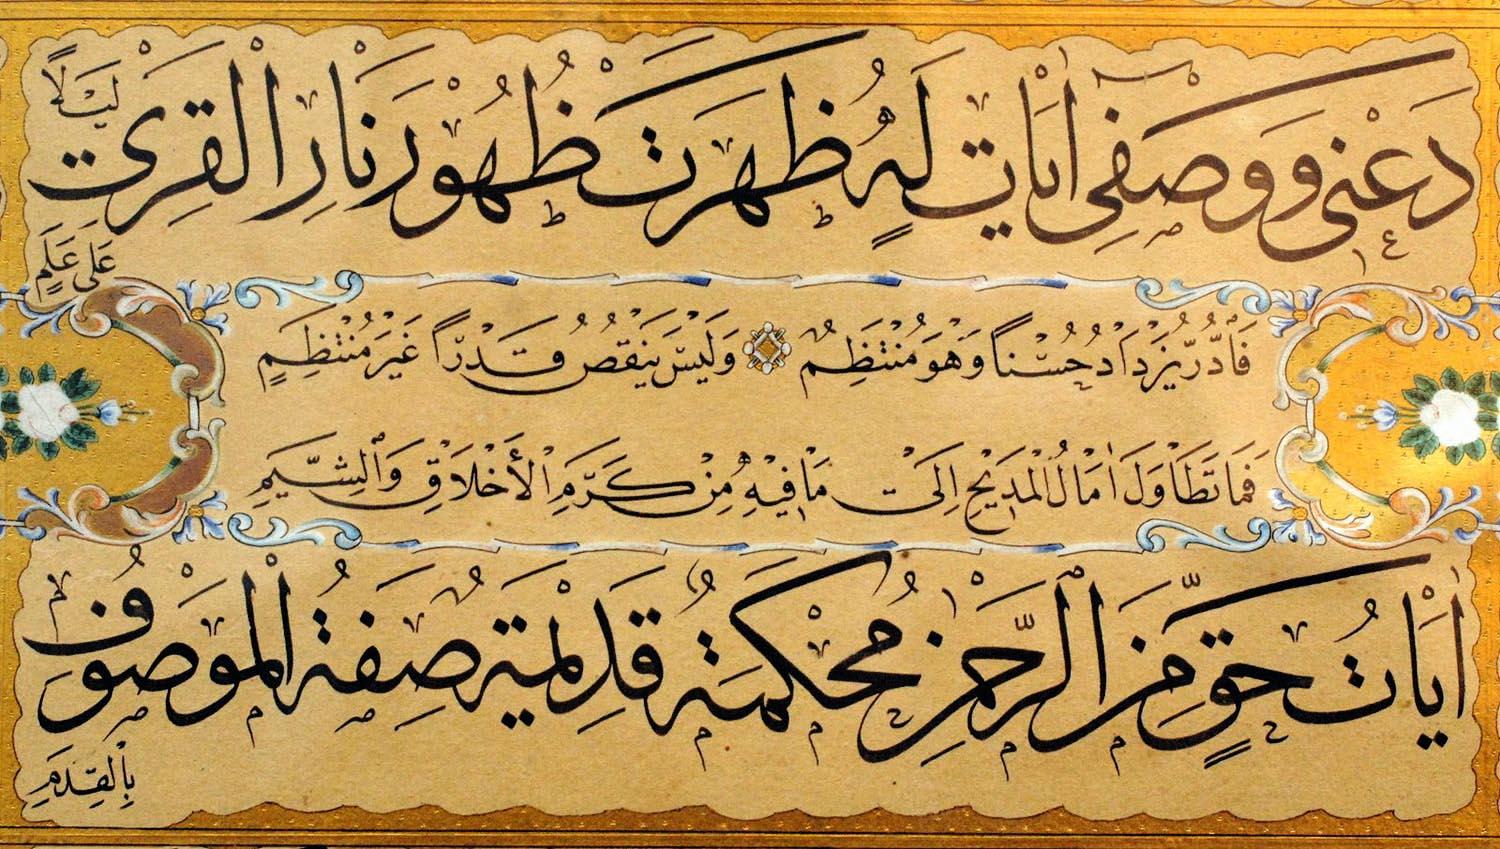 دَعْنِى وَوَصْفِى اٰيَاتٍ لَهُ ظَهَرَتْ ظُهُورَ نَارِ الْقِرٰى لَيْلًا
عَلٰى عَلَمٍ
فَالدُّرُّ يَزْدَادُ حُسْنًا وَهْوَ مُنْتَظِمٌ وَلَيْسَ يَنْقُصُ قَدْرًا غَيْرَ مُنْتَظِمٍ
فَمَا تَطَاوَلَ اٰمَالُ الْمَدِيْحِ اِلٰى مَا فِيْهِ مِنْ كَرَمِ الْأَخْلَاقِ وَالشِّيَمِ
اٰيَاتُ حَقٍّ مِنَ الرَّحْمٰنِ مُحْكَمَةٌ قَدِيْمَةٌ صِفَةُ الْمَوْصُوفِ
بِالْقِدَمِ